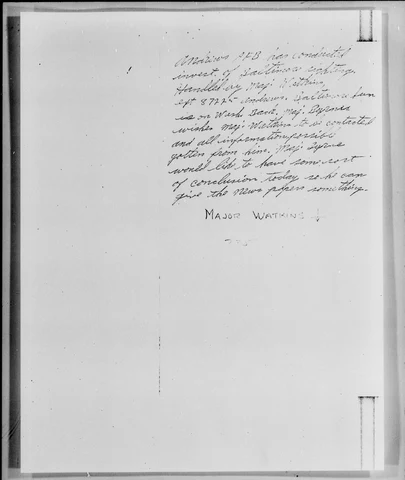 Andrews AFB has conducted
invest. of Baltimore sighting.
Handled by Maj. Watkins,
ext 8722 Andrews. Baltimore
is on Wash Bank. Maj. Byrne
wishes Maj. Watkins to be contacted
and all information possible
gotten from him. Maj. Byrne
would like to have some sort
of conclusion today so he can
give the news papers something.
MAJOR WATKINS ↓